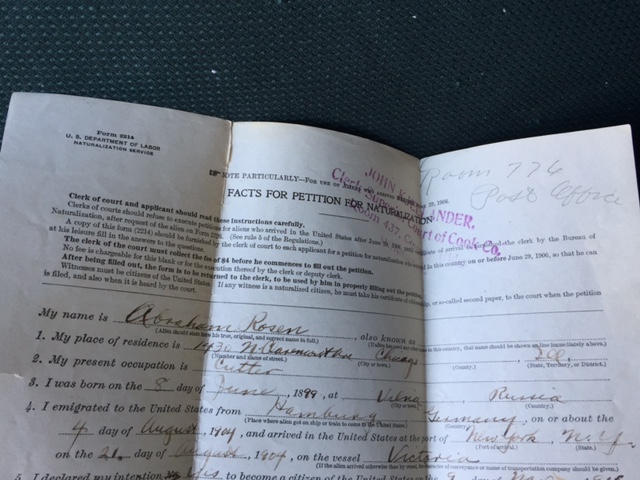 Form 2214
U. S. DEPARTMENT OF LABOR
NATURALIZATION SERVICE
Room 776
Post Office
NOTE PARTICULARLY—FOR USE OF ALIENS WHO ARRIVED 29, 1906.
JOHN
ANDER,
Clerk Superior Court of Cook Co.
Room 437,
FACTS FOR PETITION FOR NATURALIZATION
Clerk of court and applicant should read these instructions carefully.
Clerks of courts should refuse to execute petitions for aliens who arrived in the United States after June 29, 1906, the clerk by the Bureau of
Naturalization, after request of the alien on Form (See rule 5 of the Regulations.)
A copy of this form (2214) should be furnished by the clerk of court to each applicant for a petition for naturalization who in this country on or before June 29, 1906, so that he can
at his leisure fill in the answers to the questions.
The clerk of the court must collect the fee of $4 before he commences to fill out the petition.
No fee is chargeable for this blank or for the execution thereof by the clerk or deputy clerk.
After being filled out, the form is to be returned to the clerk, to be used by him in properly filling out the petition.
Witnesses must be citizens of the United States. If any witness is a naturalized citizen, he must take his certificate of citizenship, or so-called second paper, to the court when the petition
is filed, and also when it is heard by the court.
My name is Abraham Rosen, also known
(Alien should state here his true, original, and correct name in full.)
1. My place of residence is 1432 N. Claremont Ave Chicago, Ill.
(Number and name of street.) (City or town.) (County.) (State, Territory, or District.)
2. My present occupation is Cutter
3. I was born on the 8 day of June, 1899, at Vilna, Russia
(City or town.) (Country.)
4. I emigrated to the United States from Hamburg Germany, on or about the
(Place where alien got on ship or train to come to the United States.)
4 day of August, 1904, and arrived in the United States at the port of New York, N. Y.
(Port of arrival.) (State.)
on the 21 day of August, 1904, on the vessel Victoria
(If the alien arrived otherwise than by vessel, the character of conveyance or name of transportation company should be given.)
5. I declared my intention to become a citizen of the United States